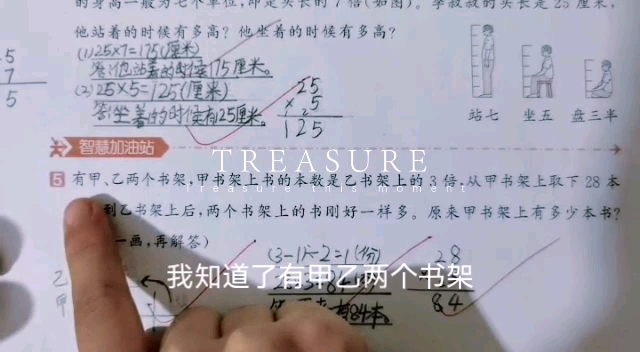 的身高一般为七个单位,即是头长的7倍(如图)。李叔叔的头长是25厘米,
他站着的时候有多高?他坐着的时候有多高?
(1)25×7=175(厘米)
答:他站着的时候175厘米。
(2)25×5=125(厘米)
答:坐着的时候有25厘米。
25
×5
2
125
5
7
5
站七 坐五 盘三半
智慧加油站
TREASURE
Treasure this moment
5 有甲、乙两个书架,甲书架上书的本数是乙书架上的3倍,从甲书架上取下28本
到乙书架上后,两个书架上的书刚好一样多。原来甲书架上有多少本书?
一画,再解答)
(3-1)÷2=1(份)
28
84
乙
甲
有84本。
我知道了有甲乙两个书架